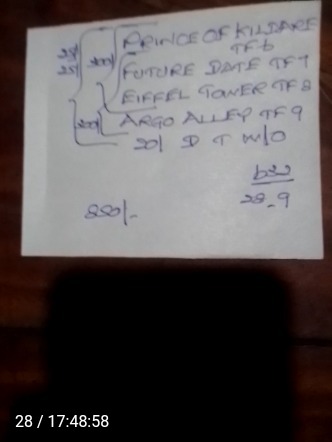 PRINCE OF KILDARE
TF6
25/ 25/ 200/ FUTURE DATE TF7
EIFFEL TOWER TF8
200/ ARGO ALLEY TF9
20/ D T W/O
632
28-9
850/-
28 / 17:48:58